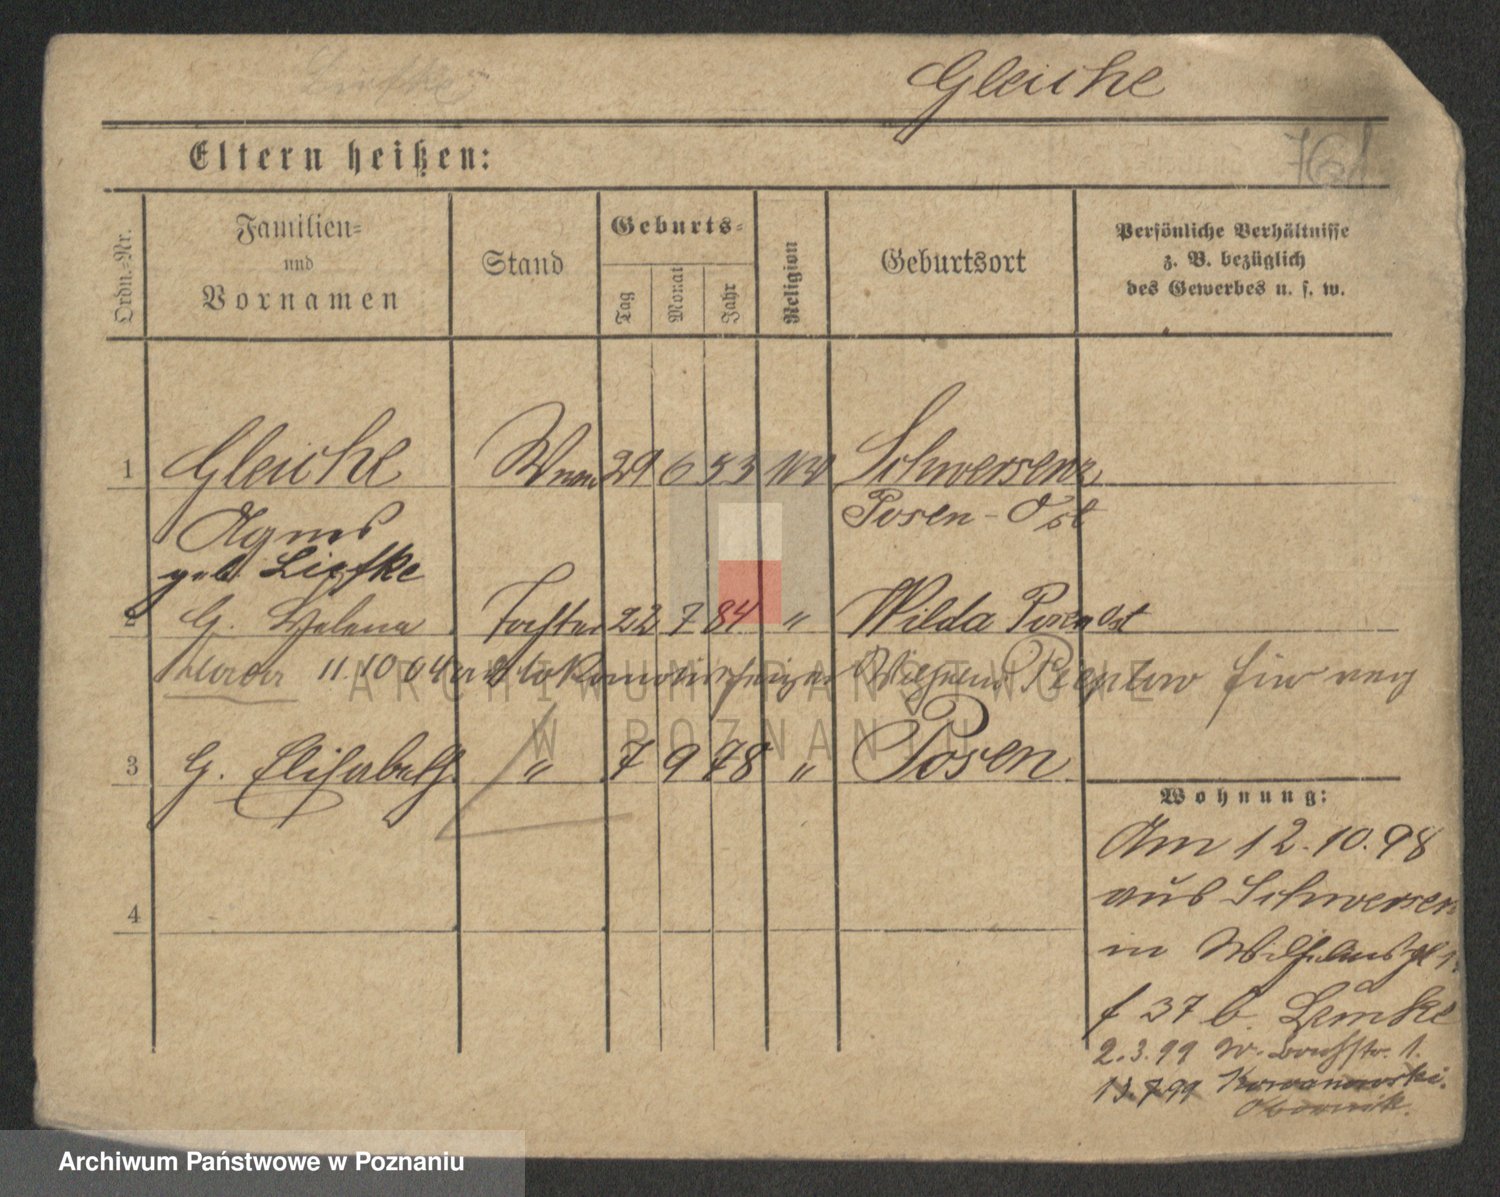 Gleiche
Eltern heißen:
Ordn.-Nr.
Familien-
und
Vornamen
Stand
Geburts-
Tag
Monat
Jahr
Religion
Geburtsort
Persönliche Verhältnisse
z. B. bezüglich
des Gewerbes u. s. w.
1 Gleiche Wwe 29 6 53 Schwersenz
Agnes Posen-Ost
geb. Liepke
2 G. Helena Tochter 22 7 84 " Wilda Posen Ost
11.10.04 Lokomotivheizer Wilhelm
3 G. Elisabeth " 7 9 78 " Posen
Wohnung:
Am 12.10.98
aus Schwersenz
in
37 b. Lemke
4
2.3.99 W. 1.
13.7.99 Kowanowski.
Obornik.
ARCHIWUM PAŃSTWOWE
W POZNANIU
Archiwum Państwowe w Poznaniu